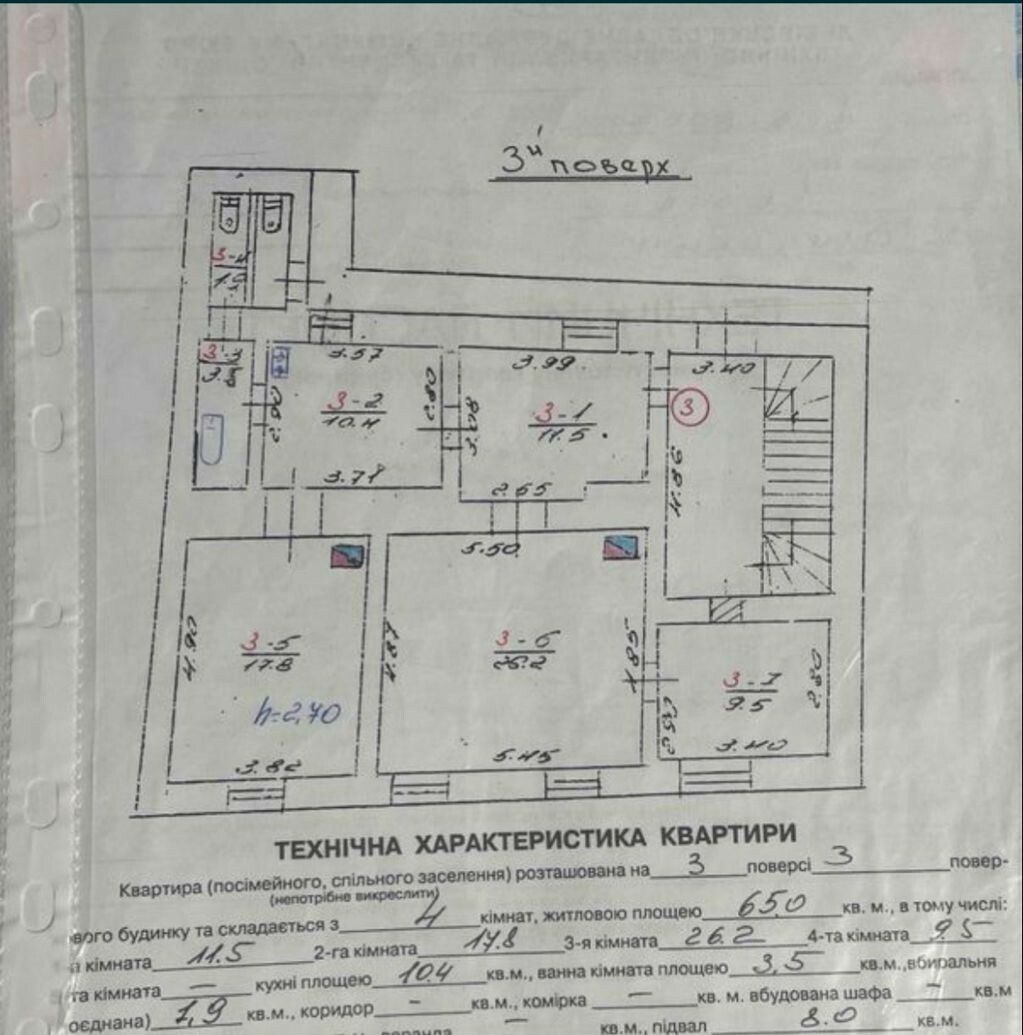 3й поверх
3-4
1.9
3-3
3.57
3.99
3.40
3-2
10.4
2.90
2.80
3.08
3-1
11.5
3
4.86
3.71
2.65
5.50
4.90
3-5
17.8
4.81
3-6
26.2
4.85
3-7
9.5
2.80
h=2,70
3.82
5.45
3.40
ТЕХНІЧНА ХАРАКТЕРИСТИКА КВАРТИРИ
Квартира (посімейного, спільного заселення) розташована на 3 поверсі 3 повер-
(непотрібне викреслити)
вого будинку та складається з 4 кімнат, житловою площею 65,0 кв. м., в тому числі:
а кімната 11.5 2-га кімната 17.8 3-я кімната 26.2 4-та кімната 9.5
та кімната — кухні площею 10.4 кв.м., ванна кімната площею 3,5 кв.м.,вбиральня
оєднана) 1,9 кв.м., коридор - кв.м., комірка — кв. м. вбудована шафа - кв.м
веранда — кв.м., підвал 8.0 кв.м.